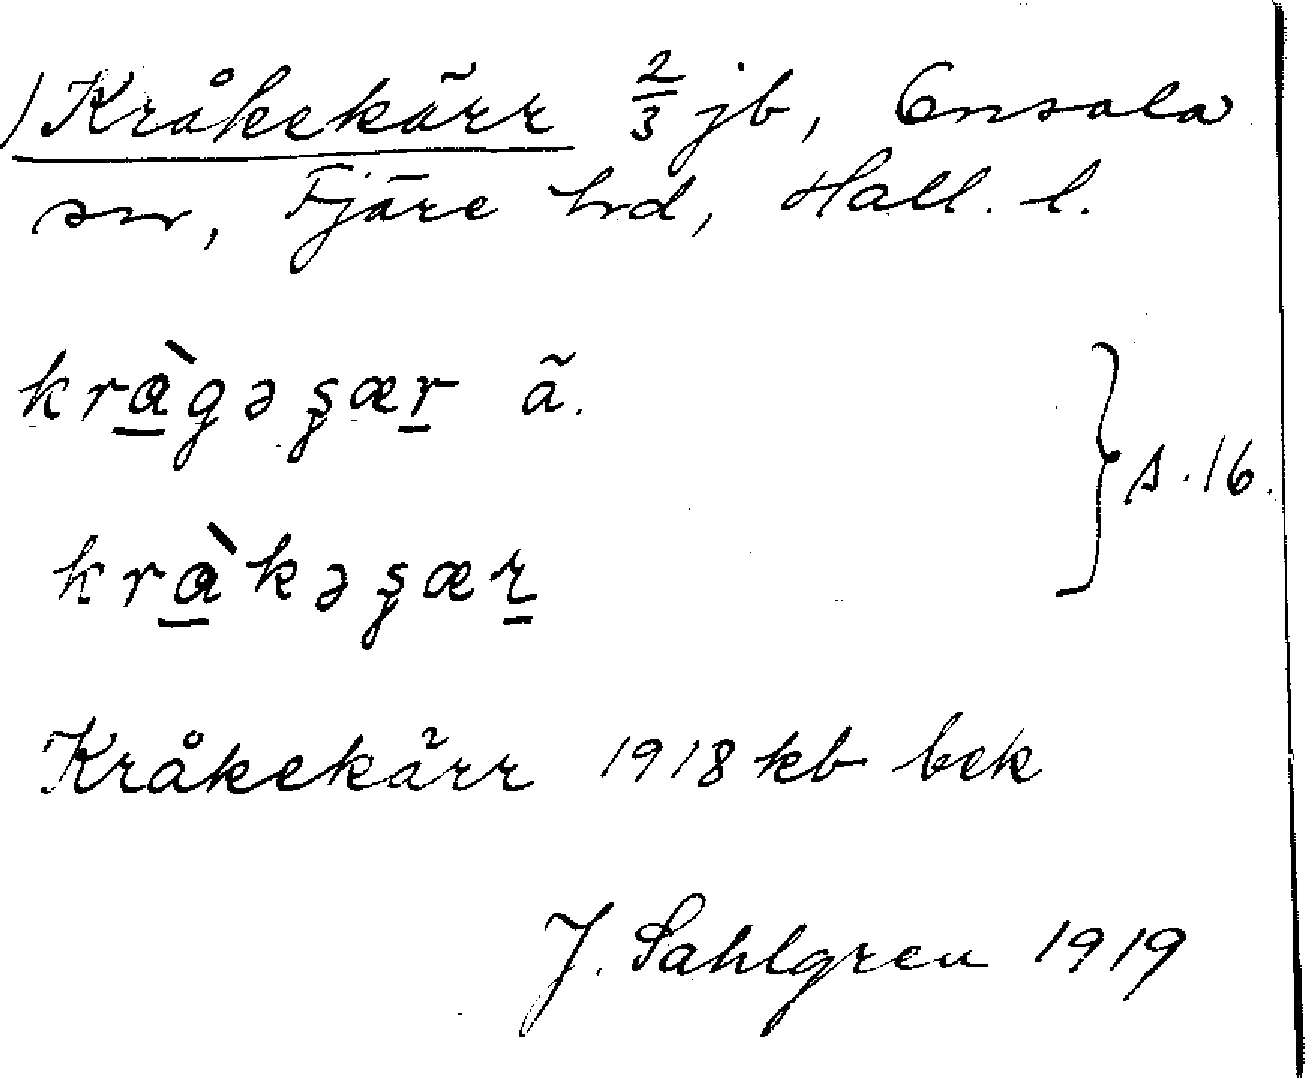 ) Kråkekärr 2/3 jb, Onsala
sn, Fjäre hrd, Hall. l.
kràgəʂær ä.
kràkəʂær
} s. 16.
Kråkekärr 1918 kb bek
J. Sahlgren 1919